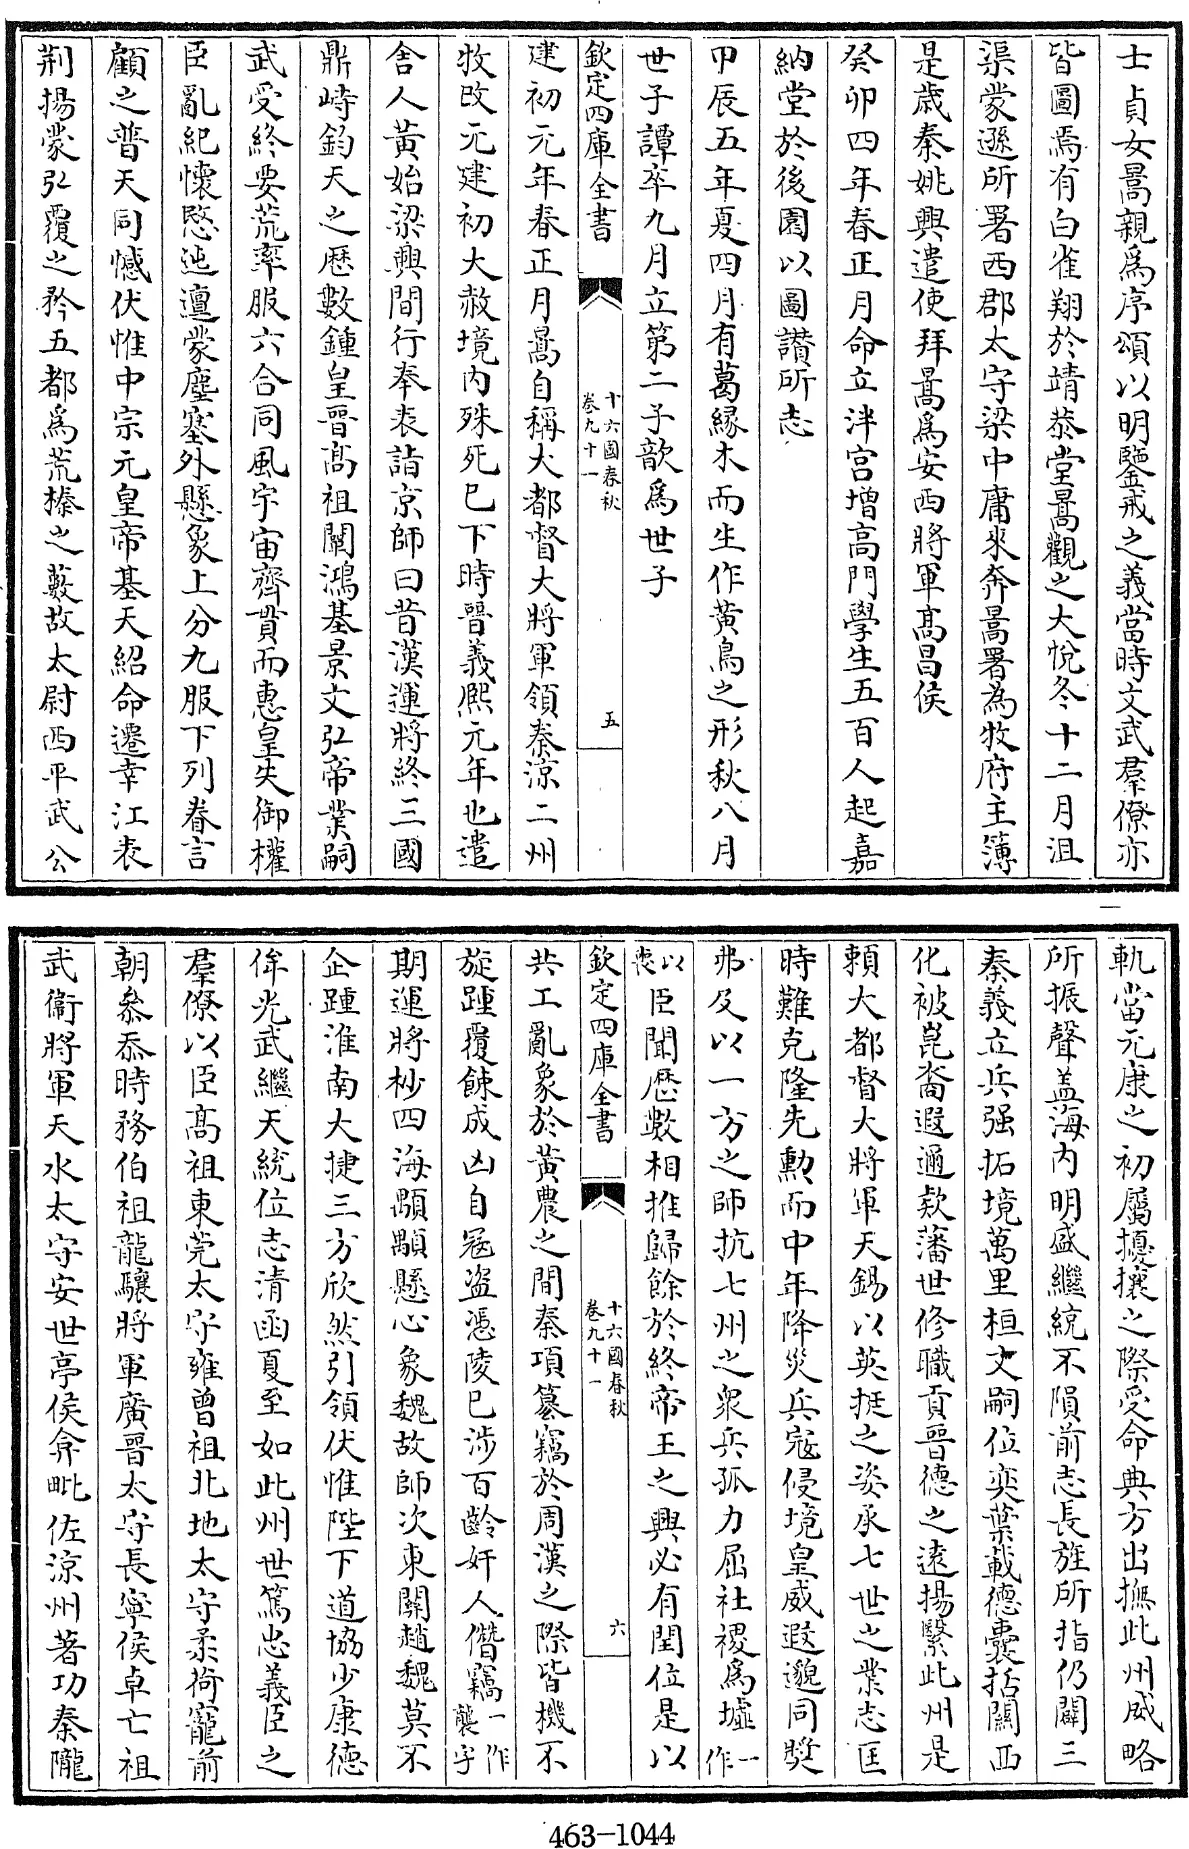 士貞女暠親為序頌以明鑒戒之義當時文武羣僚亦
皆圖焉有白雀翔於靖恭堂暠觀之大悅冬十二月沮
渠蒙遜所署西郡太守梁中庸來奔暠署為牧府主簿
是歲秦姚興遣使拜暠為安西將軍髙昌侯
癸卯四年春正月命立泮宮增高門學生五百人起嘉
納堂於後園以圖讚所志
甲辰五年夏四月有葛緣木而生作黃鳥之形秋八月
世子譚卒九月立第二子歆為世子
欽定四庫全書
十六國春秋
卷九十一
五
建初元年春正月暠自稱大都督大將軍領秦涼二州
牧改元建初大赦境內殊死已下時晉義熙元年也遣
舍人黃始梁興間行奉表詣京師曰昔漢運將終三國
鼎峙鈞天之歷數鍾皇晉髙祖闡鴻基景文弘帝業嗣
武受終要荒率服六合同風宇宙齊貫而惠皇失御權
臣亂紀懷愍迍邅蒙塵塞外懸象上分九服下列眷言
顧之普天同憾伏惟中宗元皇帝基天紹命遷幸江表
荆揚蒙弘覆之矜五都為荒榛之藪故太尉西平武公
軌當元康之初屬擾攘之際受命典方出撫此州威略
所振聲盖海內明盛繼統不隕前志長旌所指仍闢三
秦義立兵强拓境萬里桓文嗣位奕葉載德囊括關西
化被崑裔遐邇欵藩世修職貢晉德之遠揚繄此州是
頼大都督大將軍天錫以英挺之姿承七世之業志匡
時難克隆先勲而中年降災兵寇侵境皇威遐邈同奬
弗及以一方之師抗七州之衆兵孤力屈社稷為墟一作
以喪
臣聞歷數相推歸餘於終帝王之興必有閏位是以
欽定四庫全書
十六國春秋
卷九十一
六
共工亂象於黃農之間秦項簒竊於周漢之際皆機不
旋踵覆餗成凶自冦盗憑陵已涉百齡奸人僭竊一作襲字
期運將杪四海顒顒懸心象魏故師次東關趙魏莫不
企踵淮南大捷三方欣然引領伏惟陛下道協少康德
侔光武繼天統位志清函夏至如此州世篤忠義臣之
羣僚以臣髙祖東莞太守雍曾祖北地太守柔荷寵前
朝叅忝時務伯祖龍驤將軍廣晉太守長寧侯卓亡祖
武衞將軍天水太守安世亭侯弇毗佐涼州著功秦隴
463-1044